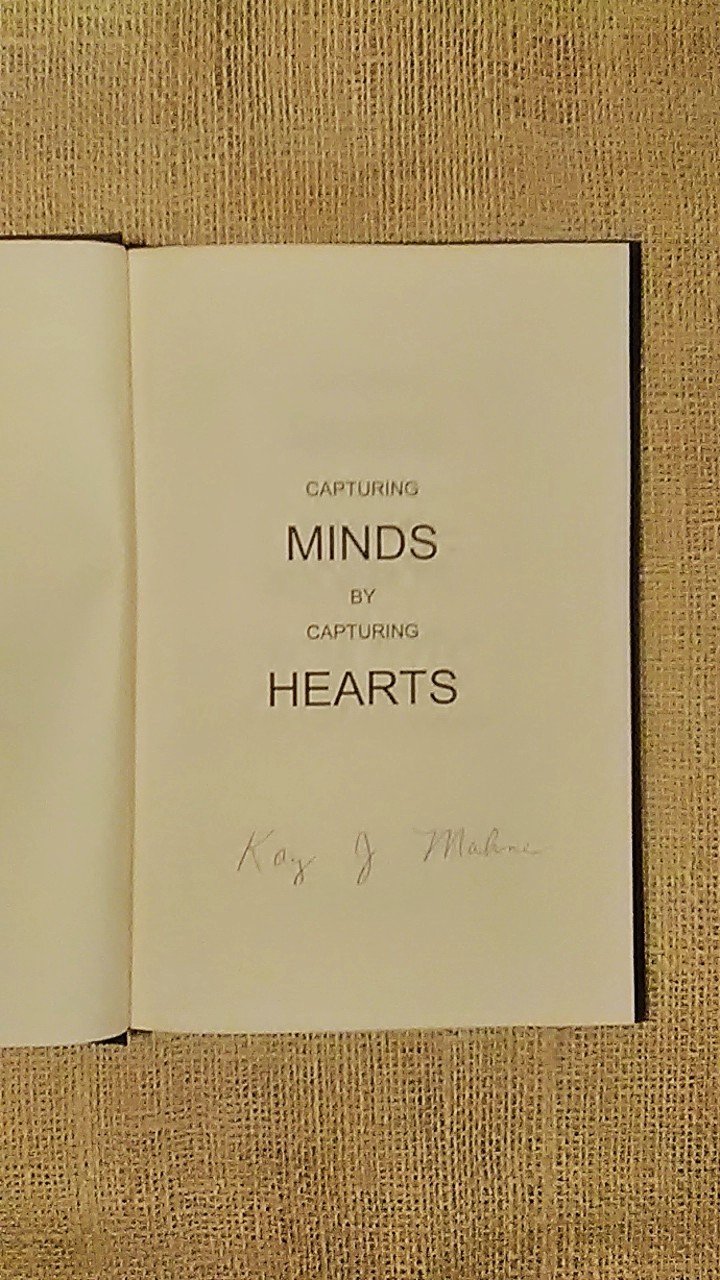 CAPTURING
MINDS
BY
CAPTURING
HEARTS
Kay J